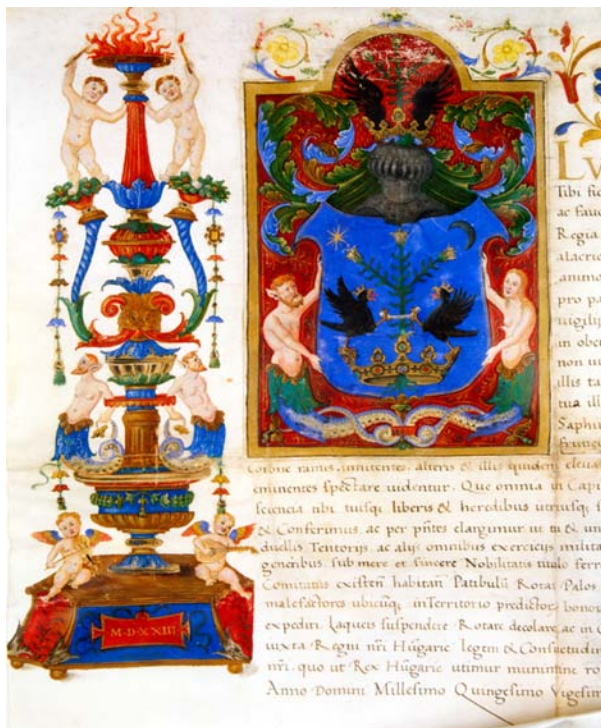 M·D·XXIII
LV
Tibi
ac
Regia
alacri
animo
pro pa
uigili
in obe
non
illis ta
tua ill
Saphi
frutig
Corone ramis innitentes, alteris & illis quidem
eminentes spectare uidentur. Que omnia in Capi
sciencia tibi tuisq; liberis & heredibus utriusq; s
& Conferimus, ac per pñtes elargimur ut tu & uni
duellis Tentorijs, ac alijs omnibus exercicijs milita
generibus, sub mere et sincere Nobilitatis titulo ferr
Comitatus existeñ habitañ Patibulũ Rotas Palos
malefactores ubicũq; in Territorio predictor, bonor
expediri, Laqueis suspendere Rotare decolare, ac in
iuxta Regni nr̃i Hũgarie legem & Consuetudin
nr̃i, quo ut Rex Hũgarie utimur munimine ro
Anno Domini Millesimo Quingesimo Vigesim